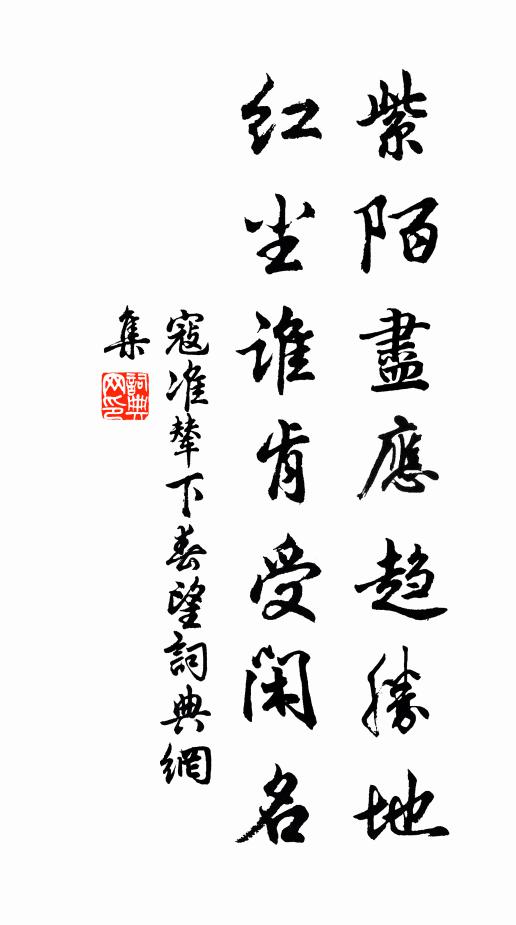 紫陌盡應趋勝地
红尘谁肯受闲名
寇准輦下春望詞典網
集
詞典
网印